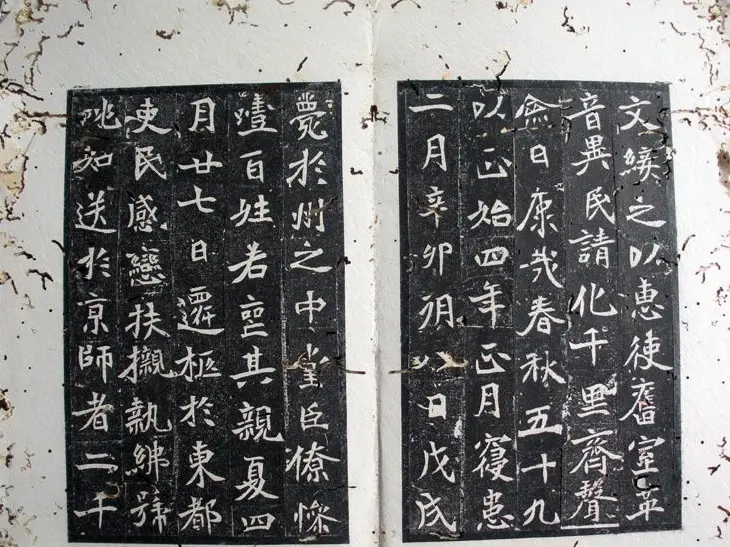 文綏之以惠使舊室革
音異民請化千里齊聲
僉曰康哉春秋五十九
以正始四年正月寢患
二月辛卯朔八日戊戌
薨於州之中堂臣僚悚
噎百姓若喪其親夏四
月廿七日遷柩於東都
吏民感戀扶櫬執紼號
咷如送於京師者二千